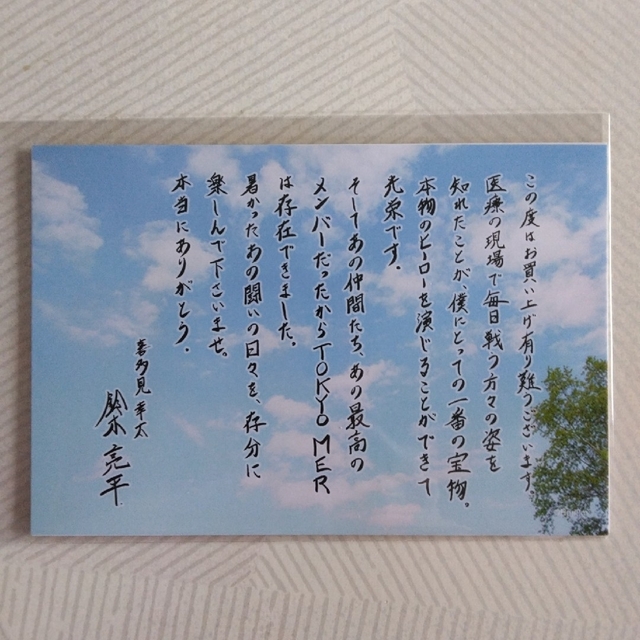 この度はお買い上げ有り難うございます。
医療の現場で毎日戦う方々の姿を
知れたことが、僕にとっての一番の宝物。
本物のヒーローを演じることができて
光栄です。
そしてあの仲間たち、あの最高の
メンバーだったからTOKYO MER
は存在できました。
暑かったあの闘いの日々を、存分に
楽しんで下さいませ。
本当にありがとう。
喜多見 幸太
鈴木 亮平